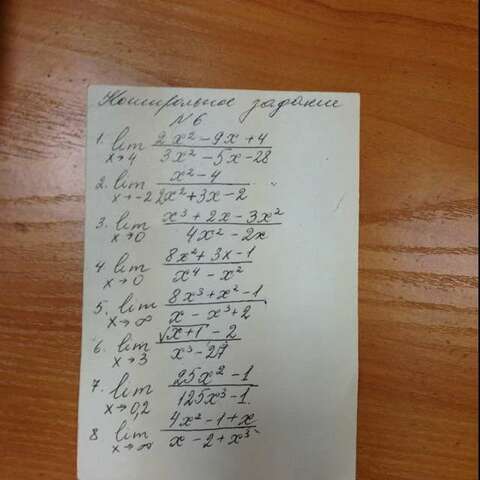 Контрольное задание
№6
1. lim x→4 (2x² - 9x + 4)/(3x² - 5x - 28)
2. lim x→-2 (x² - 4)/(2x² + 3x - 2)
3. lim x→0 (x³ + 2x - 3x²)/(4x² - 2x)
4. lim x→0 (8x² + 3x - 1)/(x⁴ - x²)
5. lim x→∞ (8x³ + x² - 1)/(x - x³ + 2)
6. lim x→3 (√(x+1) - 2)/(x³ - 27)
7. lim x→0,2 (25x² - 1)/(125x³ - 1)
8 lim x→∞ (4x² - 1 + x)/(x - 2 + x³)